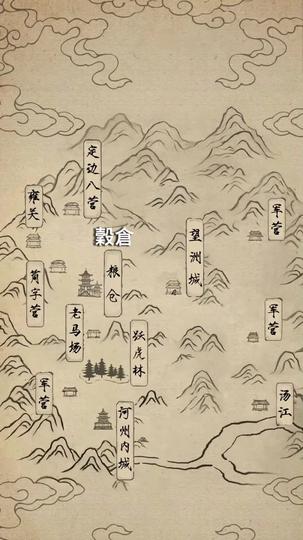 定边八营
雍关
军营
望洲城
穀倉
粮仓
简字营
老马场
军营
跃虎林
军营
汤江
河州内城